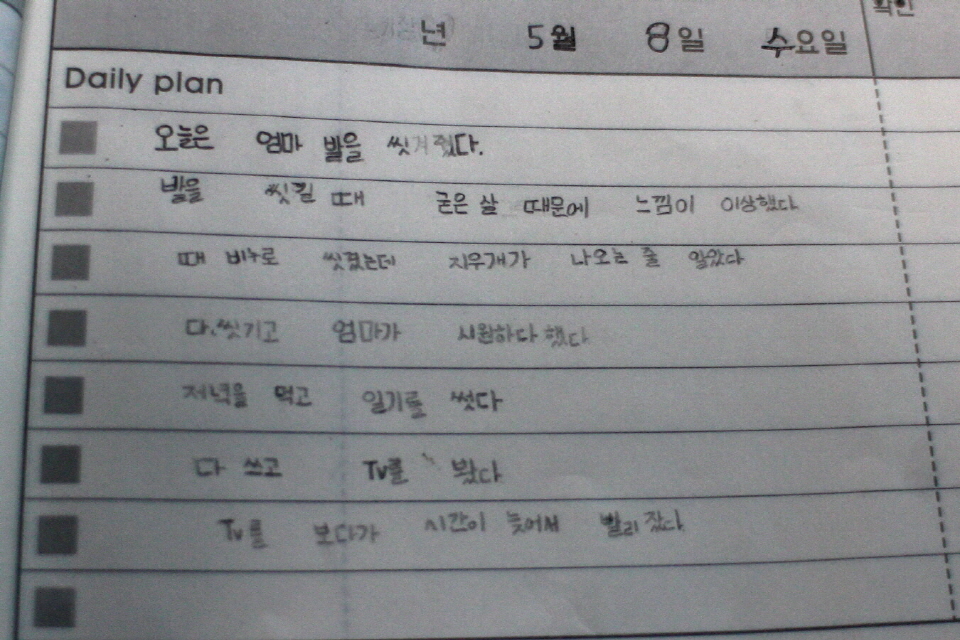 확인
년 5월 8일 수요일
Daily plan
오늘은 엄마 발을 씻겨 줬다.
발을 씻길 때 굳은 살 때문에 느낌이 이상했다
때 비누로 씻겼는데 지우개가 나오는 줄 알았다
다.씻기고 엄마가 시원하다 했다
저녁을 먹고 일기를 썼다
다 쓰고 TV를 봤다
TV를 보다가 시간이 늦어서 빨리 잤다.